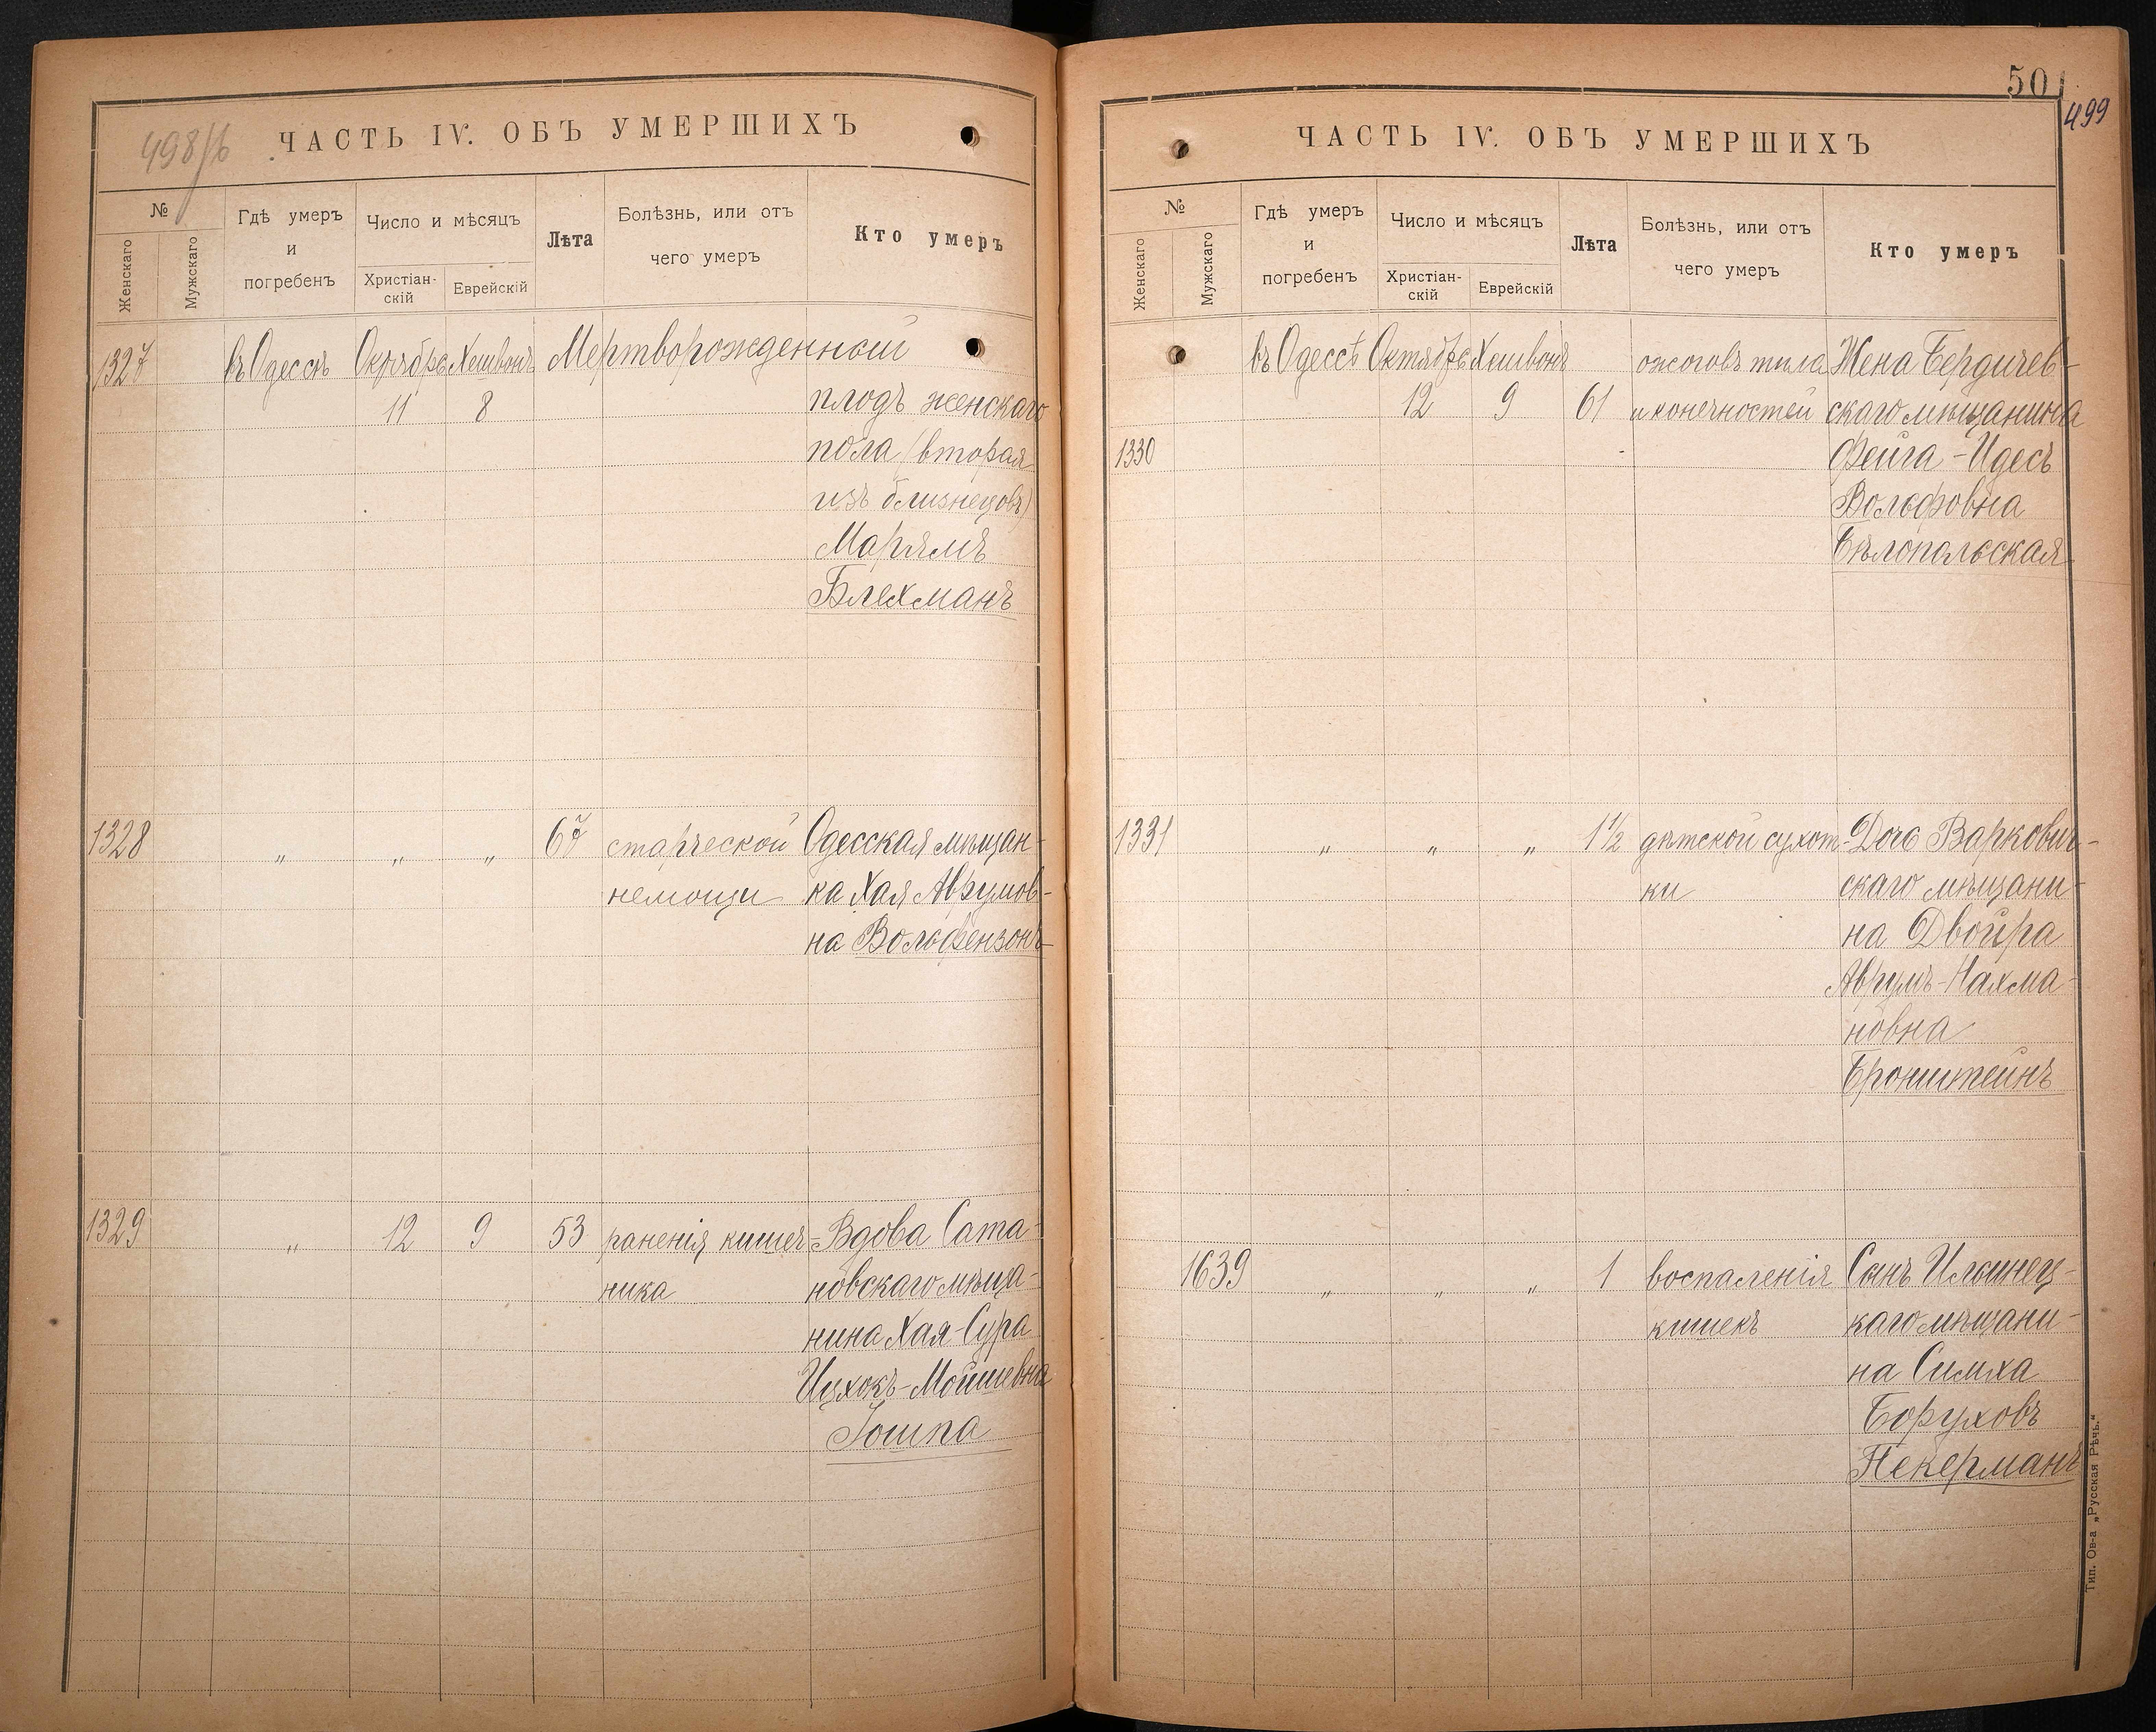 498/б
ЧАСТЬ IV. ОБЪ УМЕРШИХЪ
№
Женскаго
Мужскаго
Гдѣ умеръ
и
погребенъ
Число и мѣсяцъ
Христіан-
скій
Еврейскій
Лѣта
Болѣзнь, или отъ
чего умеръ
Кто умеръ
1327 въ Одессѣ Октябрь Хешвонъ Мертворожденный
11 8 плодъ женскаго
пола (вторая
изъ близнецовъ)
Марямъ
Блехманъ
1328 „ „ „ 67 старческой Одесская мѣщан-
немощи ка Хая Аврумов-
на Вольфензонъ
1329 „ 12 9 53 раненія кишеч- Вдова Сата-
ника новскаго мѣща-
нина Хая-Сура
Ицхокъ-Мойшевна
Іошпа
50
499
ЧАСТЬ IV. ОБЪ УМЕРШИХЪ
№
Женскаго
Мужскаго
Гдѣ умеръ
и
погребенъ
Число и мѣсяцъ
Христіан-
скій
Еврейскій
Лѣта
Болѣзнь, или отъ
чего умеръ
Кто умеръ
въ Одессѣ Октябрь Хешвонъ ожоговъ тѣла Жена Бердичев-
12 9 61 и конечностей скаго мѣщанина
1330 Фейга-Идесъ
Вольфовна
Бѣлопольская
1331 „ „ „ 1½ дѣтской сухот- Дочь Варкович-
ки скаго мѣщани-
на Двойра
Аврумъ-Нахма-
новна
Бронштейнъ
1639 „ „ „ 1 воспаленія Сынъ Ильинец-
кишекъ каго мѣщани-
на Симха
Боруховъ
Пекерманъ
Тип. Ов-а „Русская Рѣчь.“